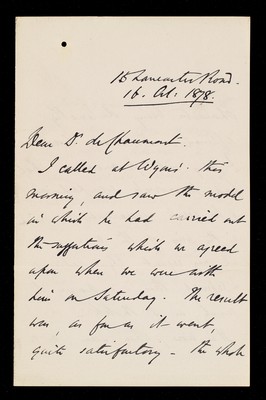 15 Lancaster Road.
16. Oct: 1878.
Dear Dr. de Chaumont.
I called at Wyon's this
morning, and saw the model
in which he had carried out
the suggestions which we agreed
upon when we were with
him on Saturday. The result
was, as far as it went,
quite satisfactory - the whole